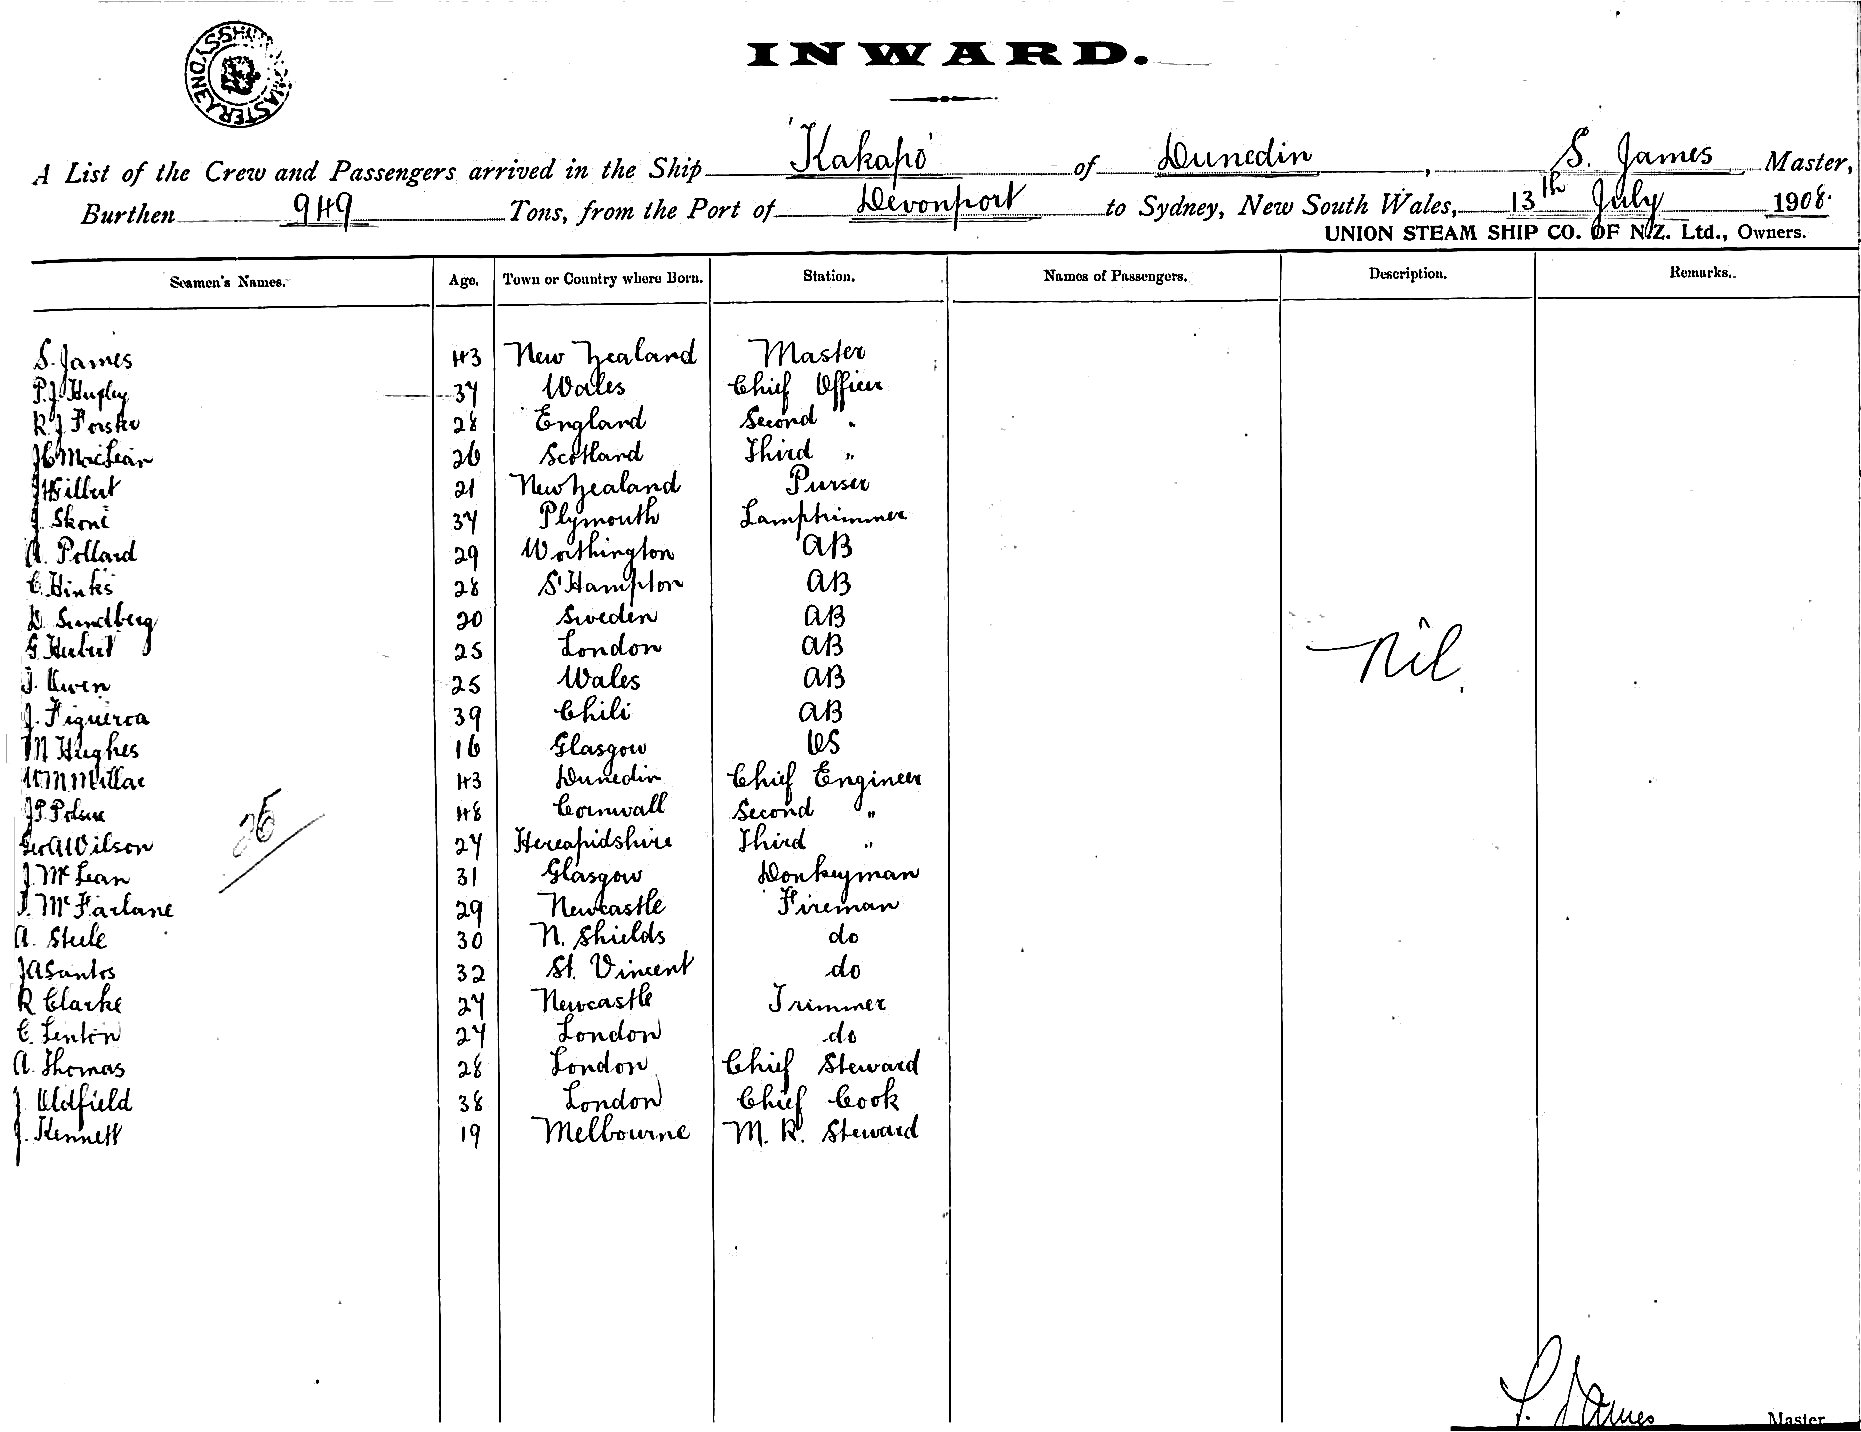 SHIPPING MASTER SYDNEY
INWARD.
A List of the Crew and Passengers arrived in the Ship 'Kakapo' of Dunedin, S. James Master,
Burthen 949 Tons, from the Port of Devonport to Sydney, New South Wales, 13th July 1908.
UNION STEAM SHIP CO. OF N.Z. Ltd., Owners.
Seamen's Names. Age. Town or Country where Born. Station. Names of Passengers. Description. Remarks.
S. James 43 New Zealand Master
P.J. 37 Wales Chief Officer
R J 28 England Second "
MacLean 26 Scotland Third "
Gilbert 21 New Zealand Purser
J. 37 Plymouth Lamptrimmer
A. Pollard 29 Worthington AB
C. Hinks 28 S'Hampton AB
D. Sundberg 20 Sweden AB
G. Herbert 25 London AB
Nil.
Owen 25 Wales AB
J. Figueroa 39 Chili AB
M Hughes 16 Glasgow OS
Millar 43 Dunedin Chief Engineer
48 Cornwall Second "
26
Geo A Wilson 27 Third "
J. McLean 31 Glasgow Donkeyman
McFarlane 29 Newcastle Fireman
A. Steele 30 N. Shields do
J A Santos 32 St. Vincent do
R Clarke 27 Newcastle Trimmer
C. Lenton 27 London do
A. Thomas 28 London Chief Steward
J Oldfield 38 London Chief Cook
J. Kennett 19 Melbourne M. R. Steward
S. James Master